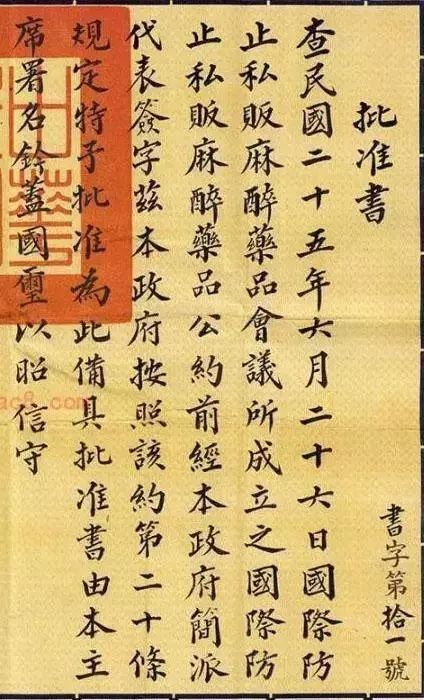 書字第拾一號
批准書
查民國二十五年六月二十六日國際防
止私販麻醉藥品會議所成立之國際防
止私販麻醉藥品公約前經本政府簡派
代表簽字茲本政府按照該約第二十條
規定特予批准為此備具批准書由本主
席署名鈐蓋國璽以昭信守
ac8.com